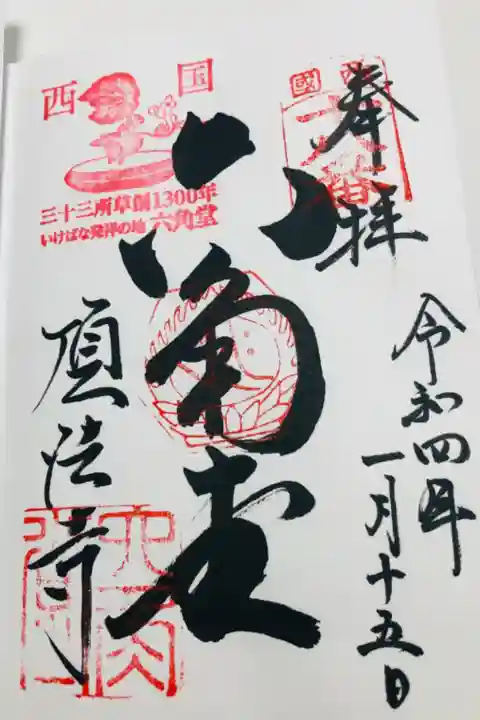 奉拝
令和四年
一月十五日
六角堂
頂法寺
西国
三十三所草創1300年
いけばな発祥の地 六角堂